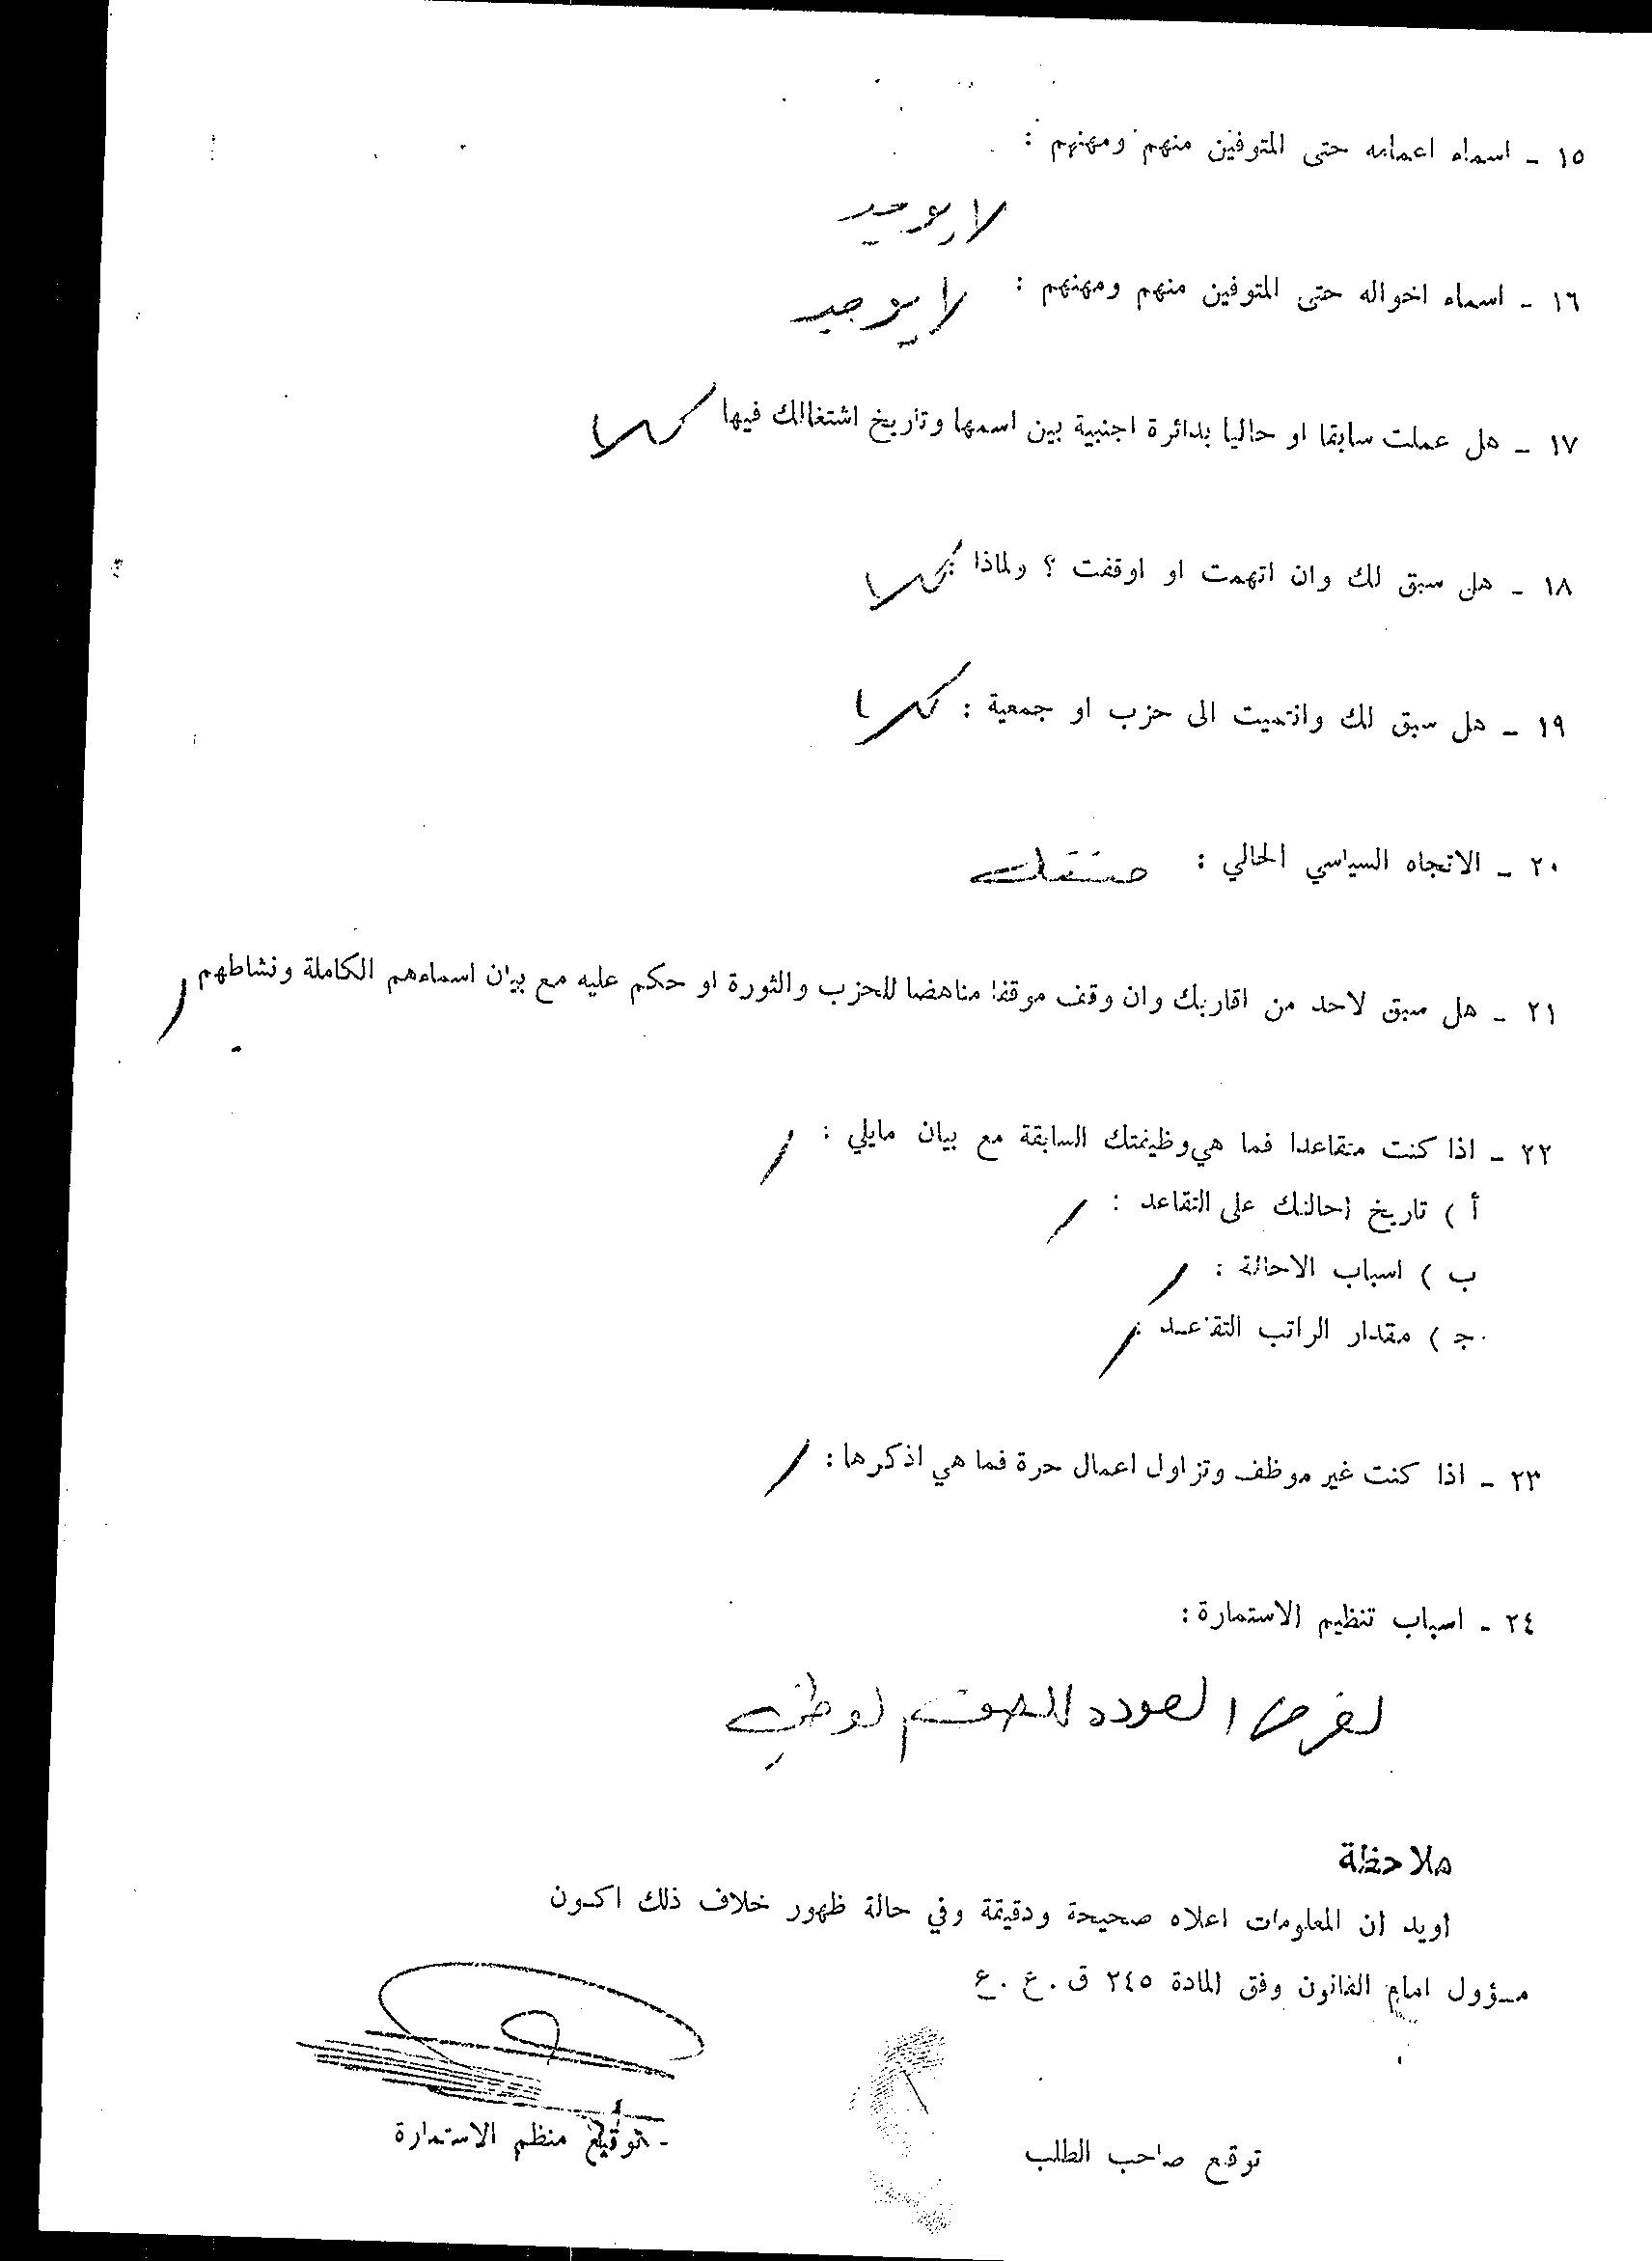 ١٥ ـ اسماء اعمامه حتى المتوفين منهم ومهنهم :
لا يوجد
١٦ ـ اسماء اخواله حتى المتوفين منهم ومهنهم : لا يوجد
١٧ ـ هل عملت سابقا او حاليا بدائرة اجنبية بين اسمها وتاريخ اشتغالك فيها كلا
١٨ ـ هل سبق لك وان اتهمت او اوقفت ؟ ولماذا : كلا
١٩ ـ هل سبق لك وانتميت الى حزب او جمعية : كلا
٢٠ ـ الاتجاه السياسي الحالي : مستقل
٢١ ـ هل سبق لاحد من اقاربك وان وقف موقفا مناهضا للحزب والثورة او حكم عليه مع بيان اسماءهم الكاملة ونشاطهم /
٢٢ ـ اذا كنت متقاعدا فما هي وظيفتك السابقة مع بيان مايلي : /
أ ) تاريخ احالتك على التقاعد : /
ب ) اسباب الاحالة : /
جـ ) مقدار الراتب التقاعد : /
٢٣ ـ اذا كنت غير موظف وتزاول اعمال حرة فما هي اذكرها : /
٢٤ ـ اسباب تنظيم الاستمارة :
لغرض العودة للصف الوطني
ملاحظة
أويد ان المعلومات اعلاه صحيحة ودقيقة وفي حالة ظهور خلاف ذلك اكون
مسؤول امام القانون وفق المادة ٢٤٥ ق . ع . ع
توقع صاحب الطلب
ـ توقيع منظم الاستمارة